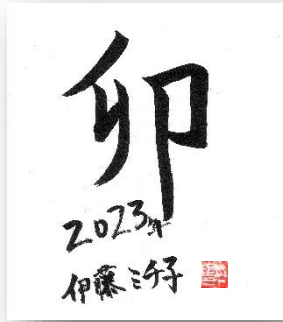 卯
2023年
伊藤ミチ子